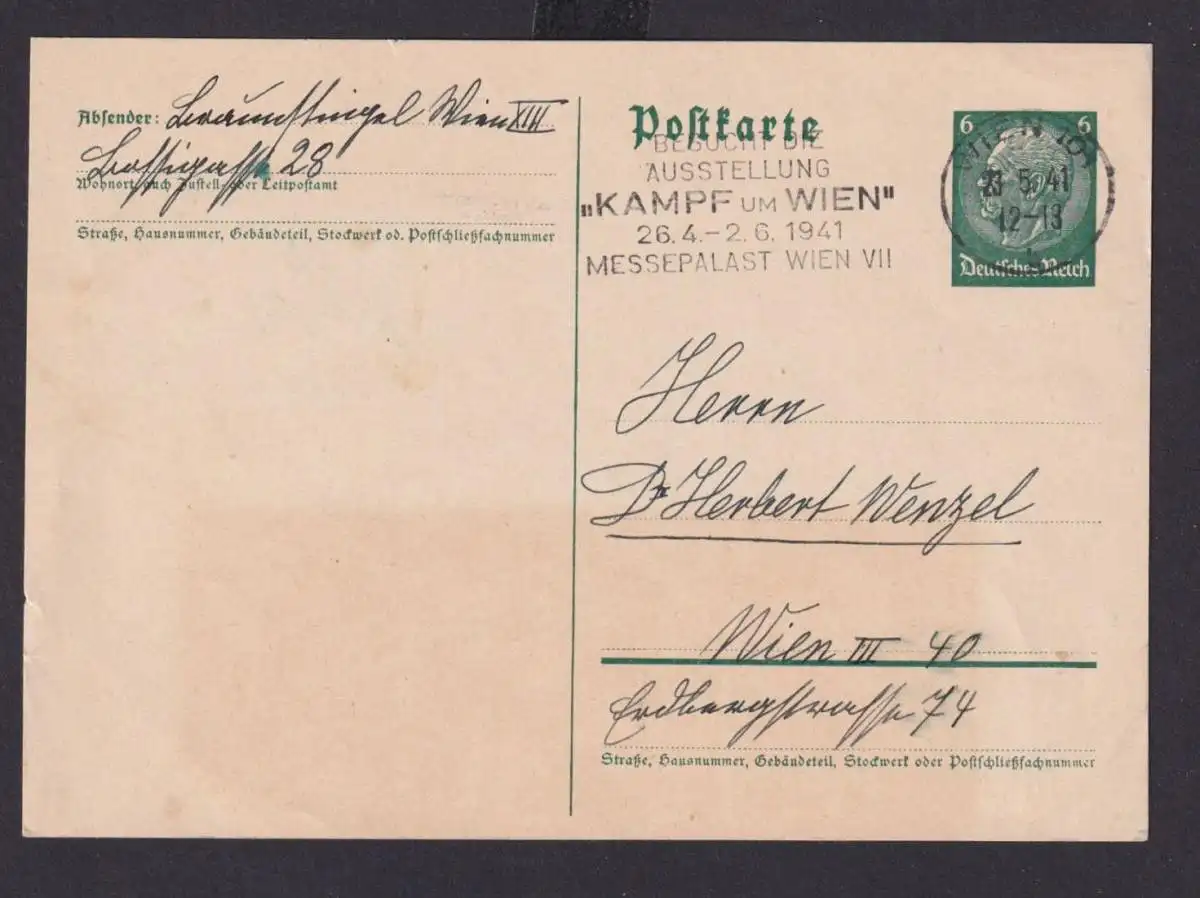 Absender: Braunstingel Wien XIII
Bossigasse 28
Wohnort, auch Zustell- oder Leitpostamt
Straße, Hausnummer, Gebäudeteil, Stockwerk od. Postschließfachnummer
Postkarte
BESUCHT DIE
AUSSTELLUNG
"KAMPF UM WIEN"
26.4.-2.6.1941
MESSEPALAST WIEN VII
6 6
WIEN
23.5.41
12-13
Deutsches Reich
Herrn
Dr Herbert Wenzel
Wien III 40
Erdbergstrasse 74
Straße, Hausnummer, Gebäudeteil, Stockwerk oder Postschließfachnummer